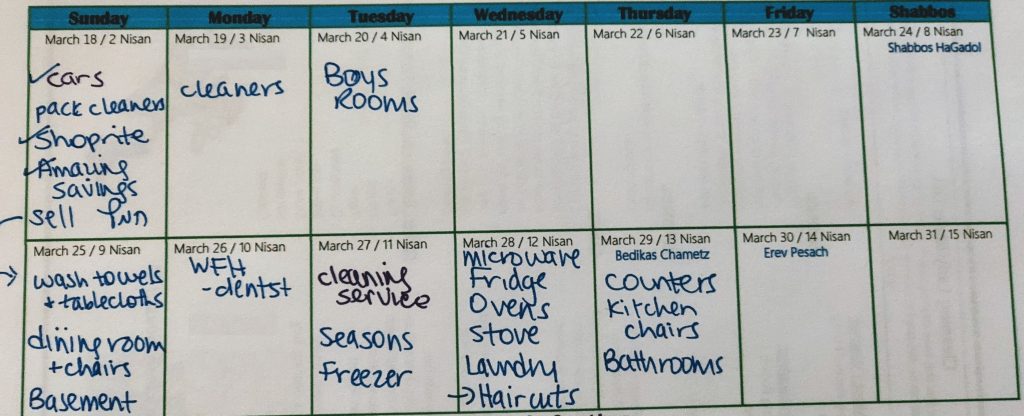 Sunday
Monday
Tuesday
Wednesday
Thursday
Friday
Shabbos
March 18 / 2 Nisan
✓cars
pack cleaners
✓Shoprite
✓Amazing
savings
sell חמץ
March 19 / 3 Nisan
cleaners
March 20 / 4 Nisan
Boys
Rooms
March 21 / 5 Nisan
March 22 / 6 Nisan
March 23 / 7 Nisan
March 24 / 8 Nisan
Shabbos HaGadol
March 25 / 9 Nisan
→ wash towels
+ tablecloths
dining room
+ chairs
Basement
March 26 / 10 Nisan
WFH
- dentst
March 27 / 11 Nisan
cleaning
service
Seasons
Freezer
March 28 / 12 Nisan
microwave
Fridge
Ovens
Stove
Laundry
→ Haircuts
March 29 / 13 Nisan
Bedikas Chametz
counters
Kitchen
chairs
Bathrooms
March 30 / 14 Nisan
Erev Pesach
March 31 / 15 Nisan